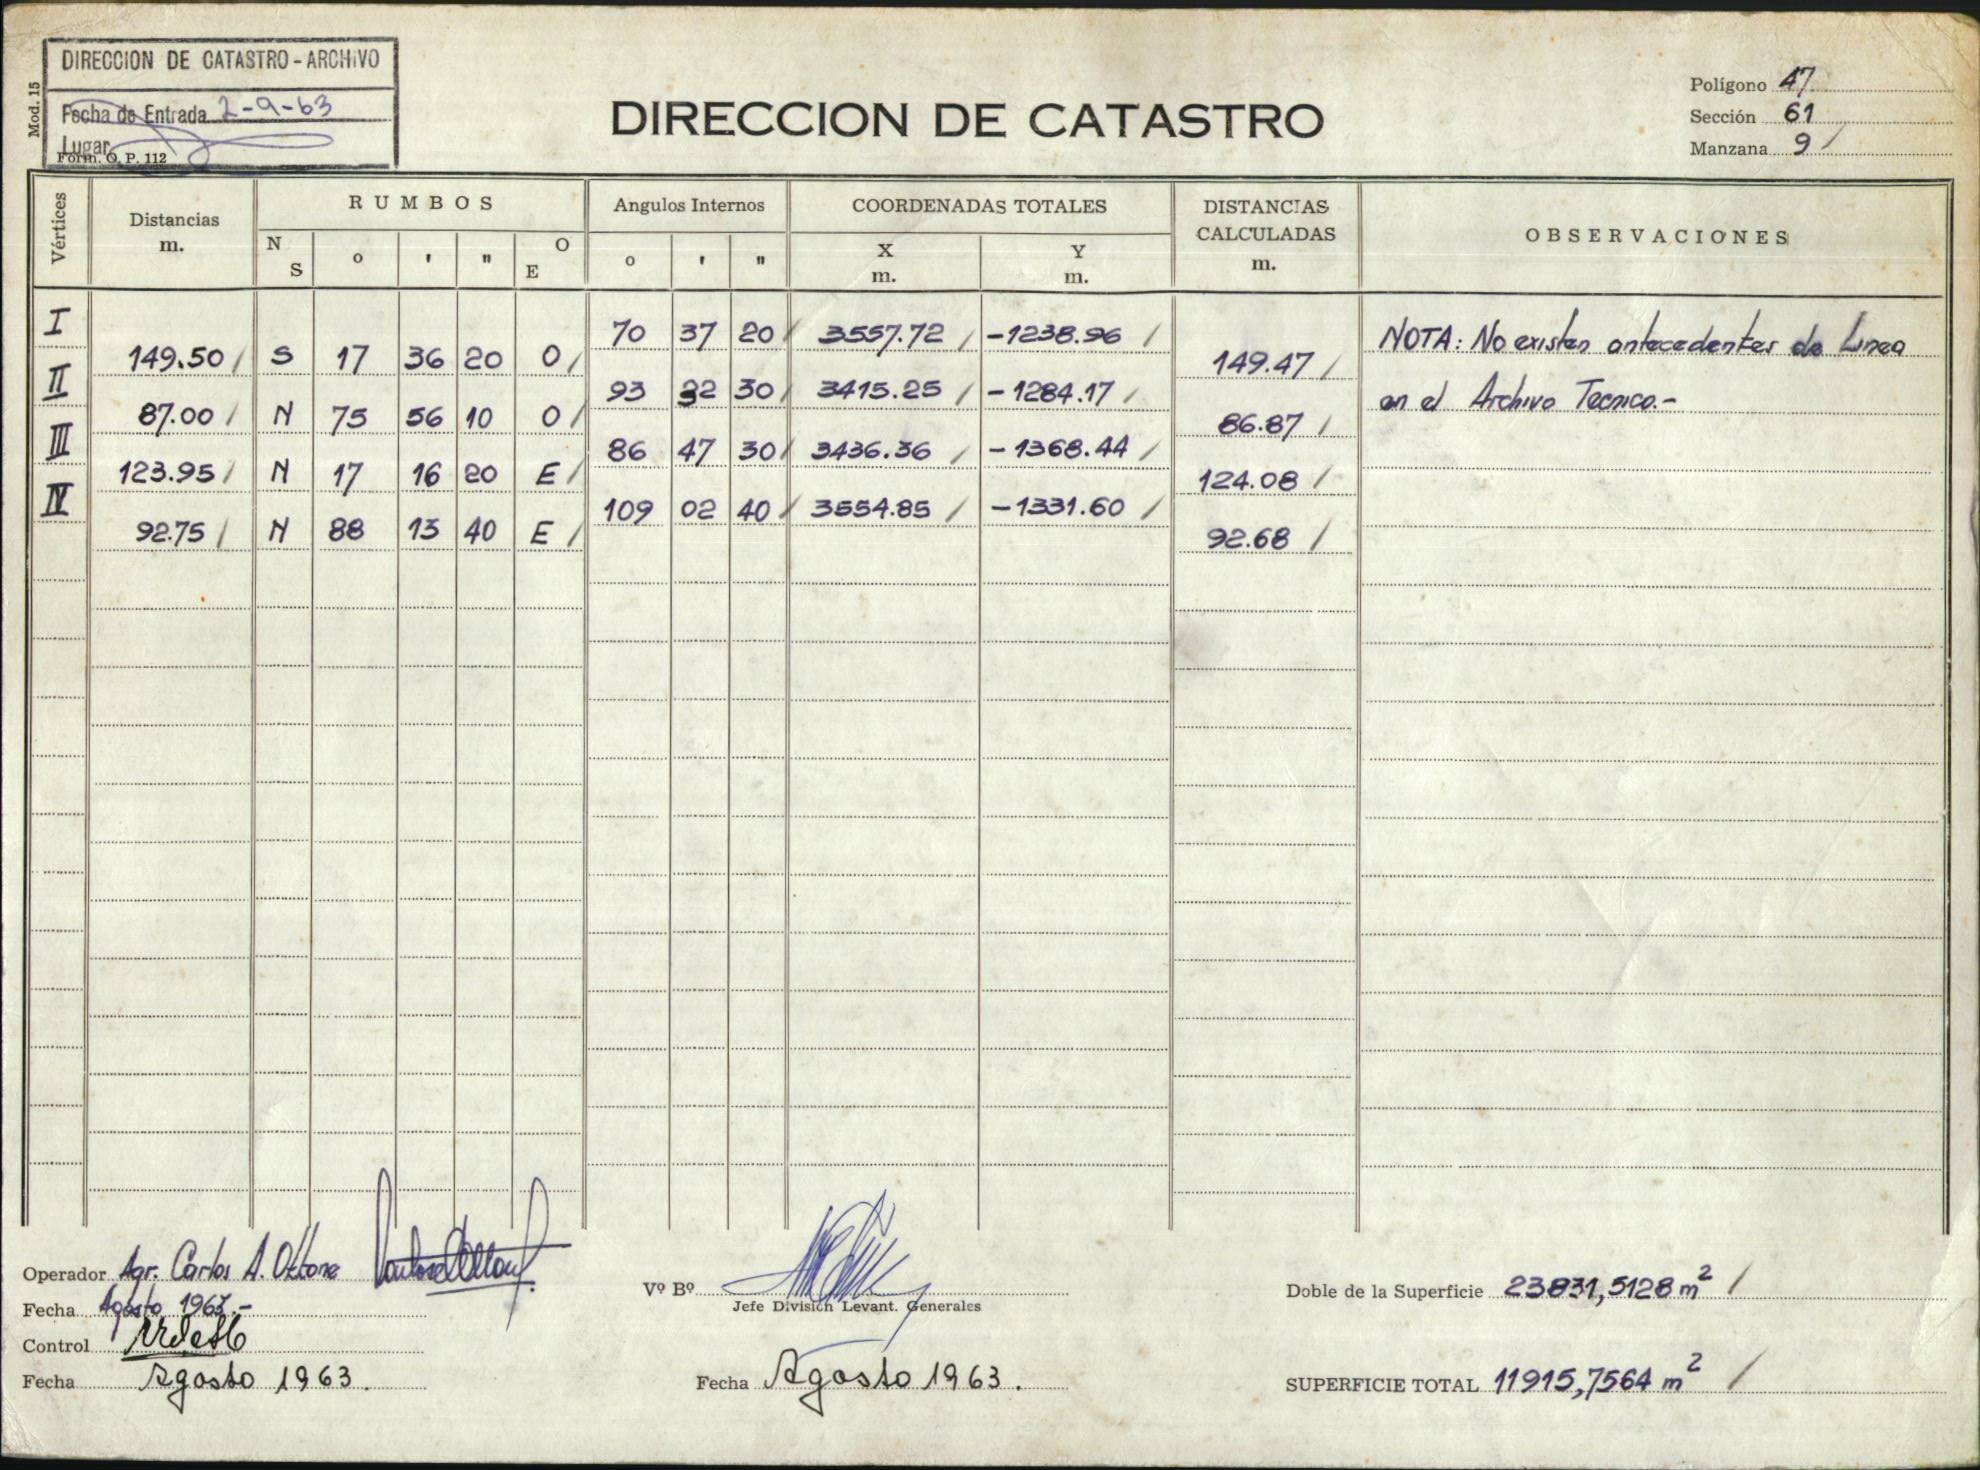 DIRECCION DE CATASTRO - ARCHIVO
Fecha de Entrada 2-9-63
Lugar
Mod. 15
Form. O. P. 112
DIRECCION DE CATASTRO
Polígono 47
Sección 61
Manzana 9 /
Vértices
Distancias m.
RUMBOS
N S ° ' " O E
Angulos Internos
° ' "
COORDENADAS TOTALES
X m. Y m.
DISTANCIAS CALCULADAS m.
OBSERVACIONES
I 70 37 20 / 3557.72 / -1238.96 /
149.50 / S 17 36 20 O / 149.47 /
II 93 32 30 / 3415.25 / -1284.17 /
87.00 / N 75 56 10 O / 86.87 /
III 86 47 30 / 3436.36 / -1368.44 /
123.95 / N 17 16 20 E / 124.08 /
IV 109 02 40 / 3554.85 / -1331.60 /
92.75 / N 88 13 40 E / 92.68 /
NOTA: No existen antecedentes de Linea
en el Archivo Tecnico.-
Operador Agr. Carlos A. Ottone
Fecha Agosto 1963.-
Control
Fecha Agosto 1963.
Vº Bº
Jefe División Levant. Generales
Fecha Agosto 1963.
Doble de la Superficie 23831,5128 m² /
SUPERFICIE TOTAL 11915,7564 m² /